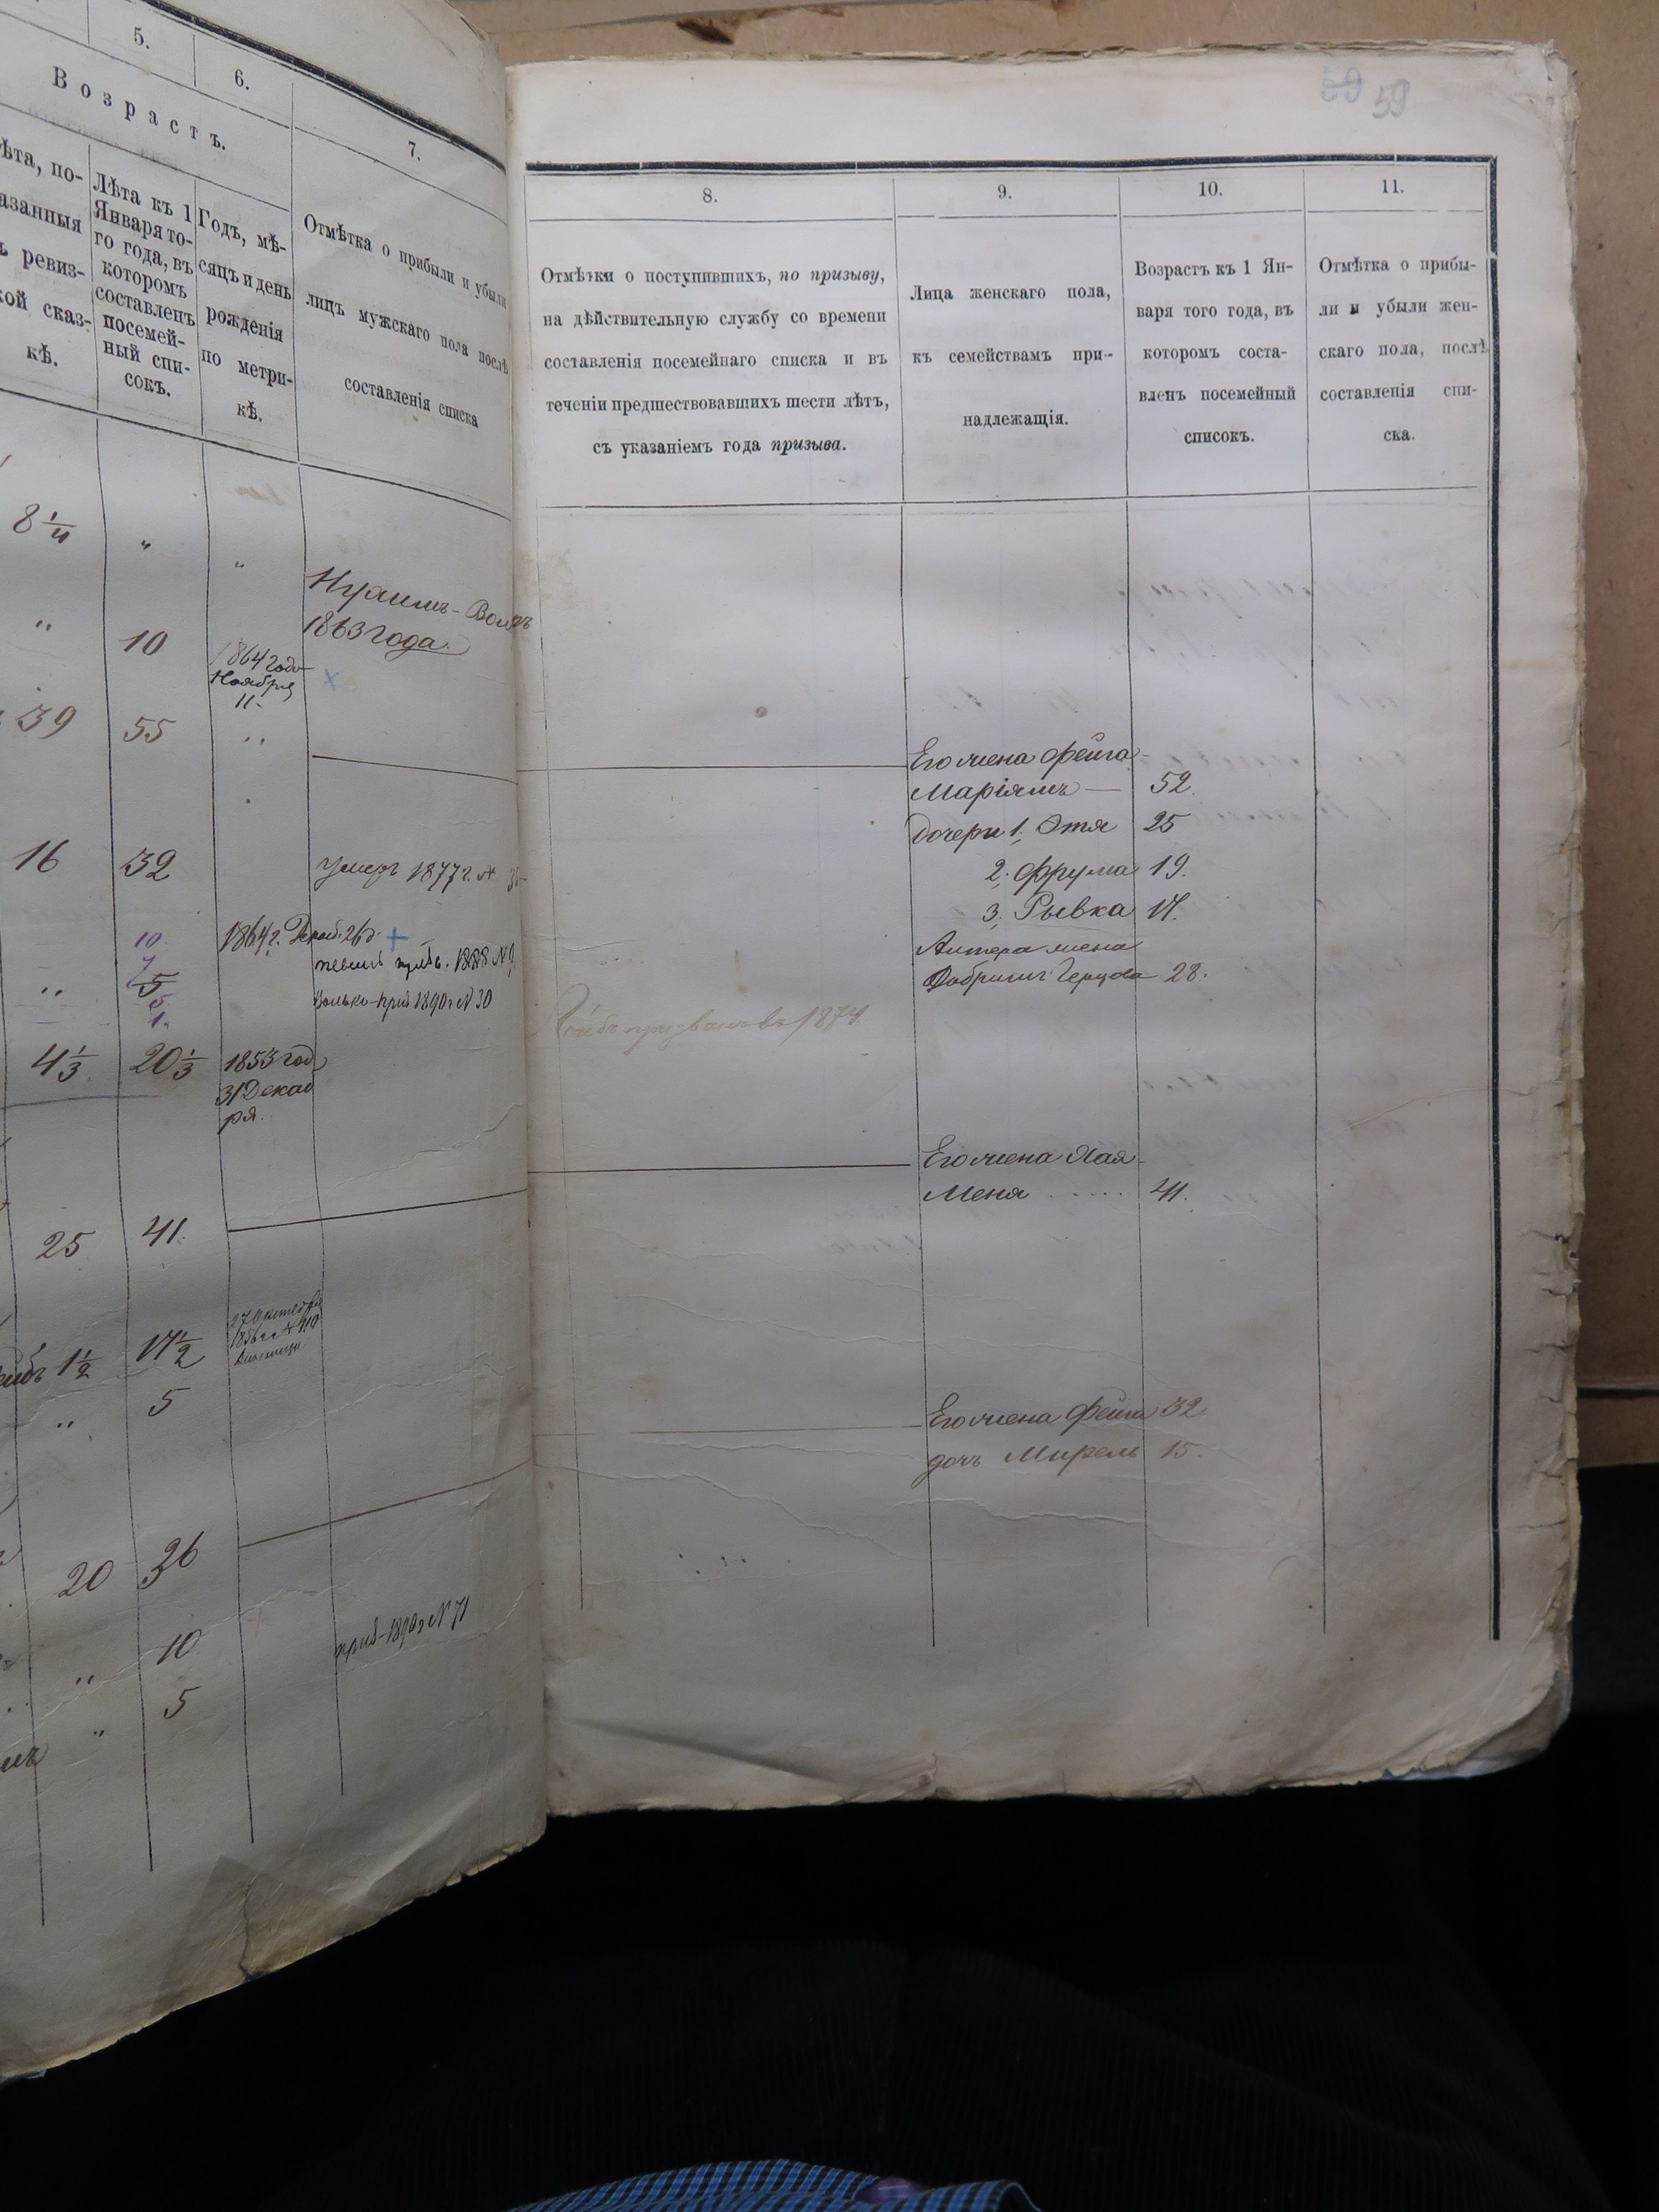 5.
6.
7.
Возрастъ.
ѣта, по-
азанныя
ревиз-
ой сказ-
кѣ.
Лѣта къ 1
Января то-
го года, въ
которомъ
составленъ
посемей-
ный спи-
сокъ.
Годъ, мѣ-
сяцъ и день
рожденія
по метри-
кѣ.
Отмѣтка о прибыли и убыли
лицъ мужскаго пола послѣ
составленія списка
8 1/11 " "
" 10
1863 года.
1864 года
Ноября
11.
39 55 "
16 32
умеръ 1877 г. №
10
1864 г. Декаб. 26 д.
1888 №
" 5
1.
приб 1890 г № 30
4 1/3 20 1/3 1853 год
31 Декаб
ря.
25 41.
27 Октября
1 1/2 17 1/2
" 5
20 36
" 10
приб-1890 г № 71
" 5
59 59
8.
9.
10.
11.
Отмѣтки о поступившихъ, по призыву,
на дѣйствительную службу со времени
составленія посемейнаго списка и въ
теченіи предшествовавшихъ шести лѣтъ,
съ указаніемъ года призыва.
Лица женскаго пола,
къ семействамъ при-
надлежащія.
Возрастъ къ 1 Ян-
варя того года, въ
которомъ соста-
вленъ посемейный
списокъ.
Отмѣтка о прибы-
ли и убыли жен-
скаго пола, послѣ
составленія спи-
ска.
Его жена Фейга-
Маріямъ — 52.
дочери 1, Этя 25
2, Фрума 19.
3, Рывка 17.
Алтера жена
Добришъ Герцова 28.
1874.
Его жена Хая-
Меня ..... 41.
Его жена Фейга 32
дочь Мирель 15.